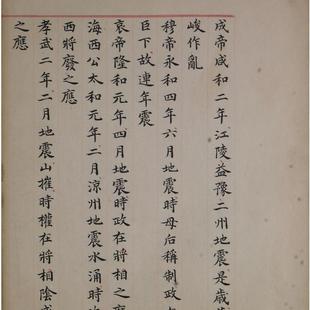 成帝咸和二年江陵益豫二州地震是歲蘇
峻作亂
穆帝永和四年六月地震時母后稱制政在
臣下故連年震
哀帝隆和元年四月地震時政在將相之應
海西公太和元年二月涼州地震水涌時海
西將廢之應
孝武二年二月地震山摧時權在將相陰盛
之應